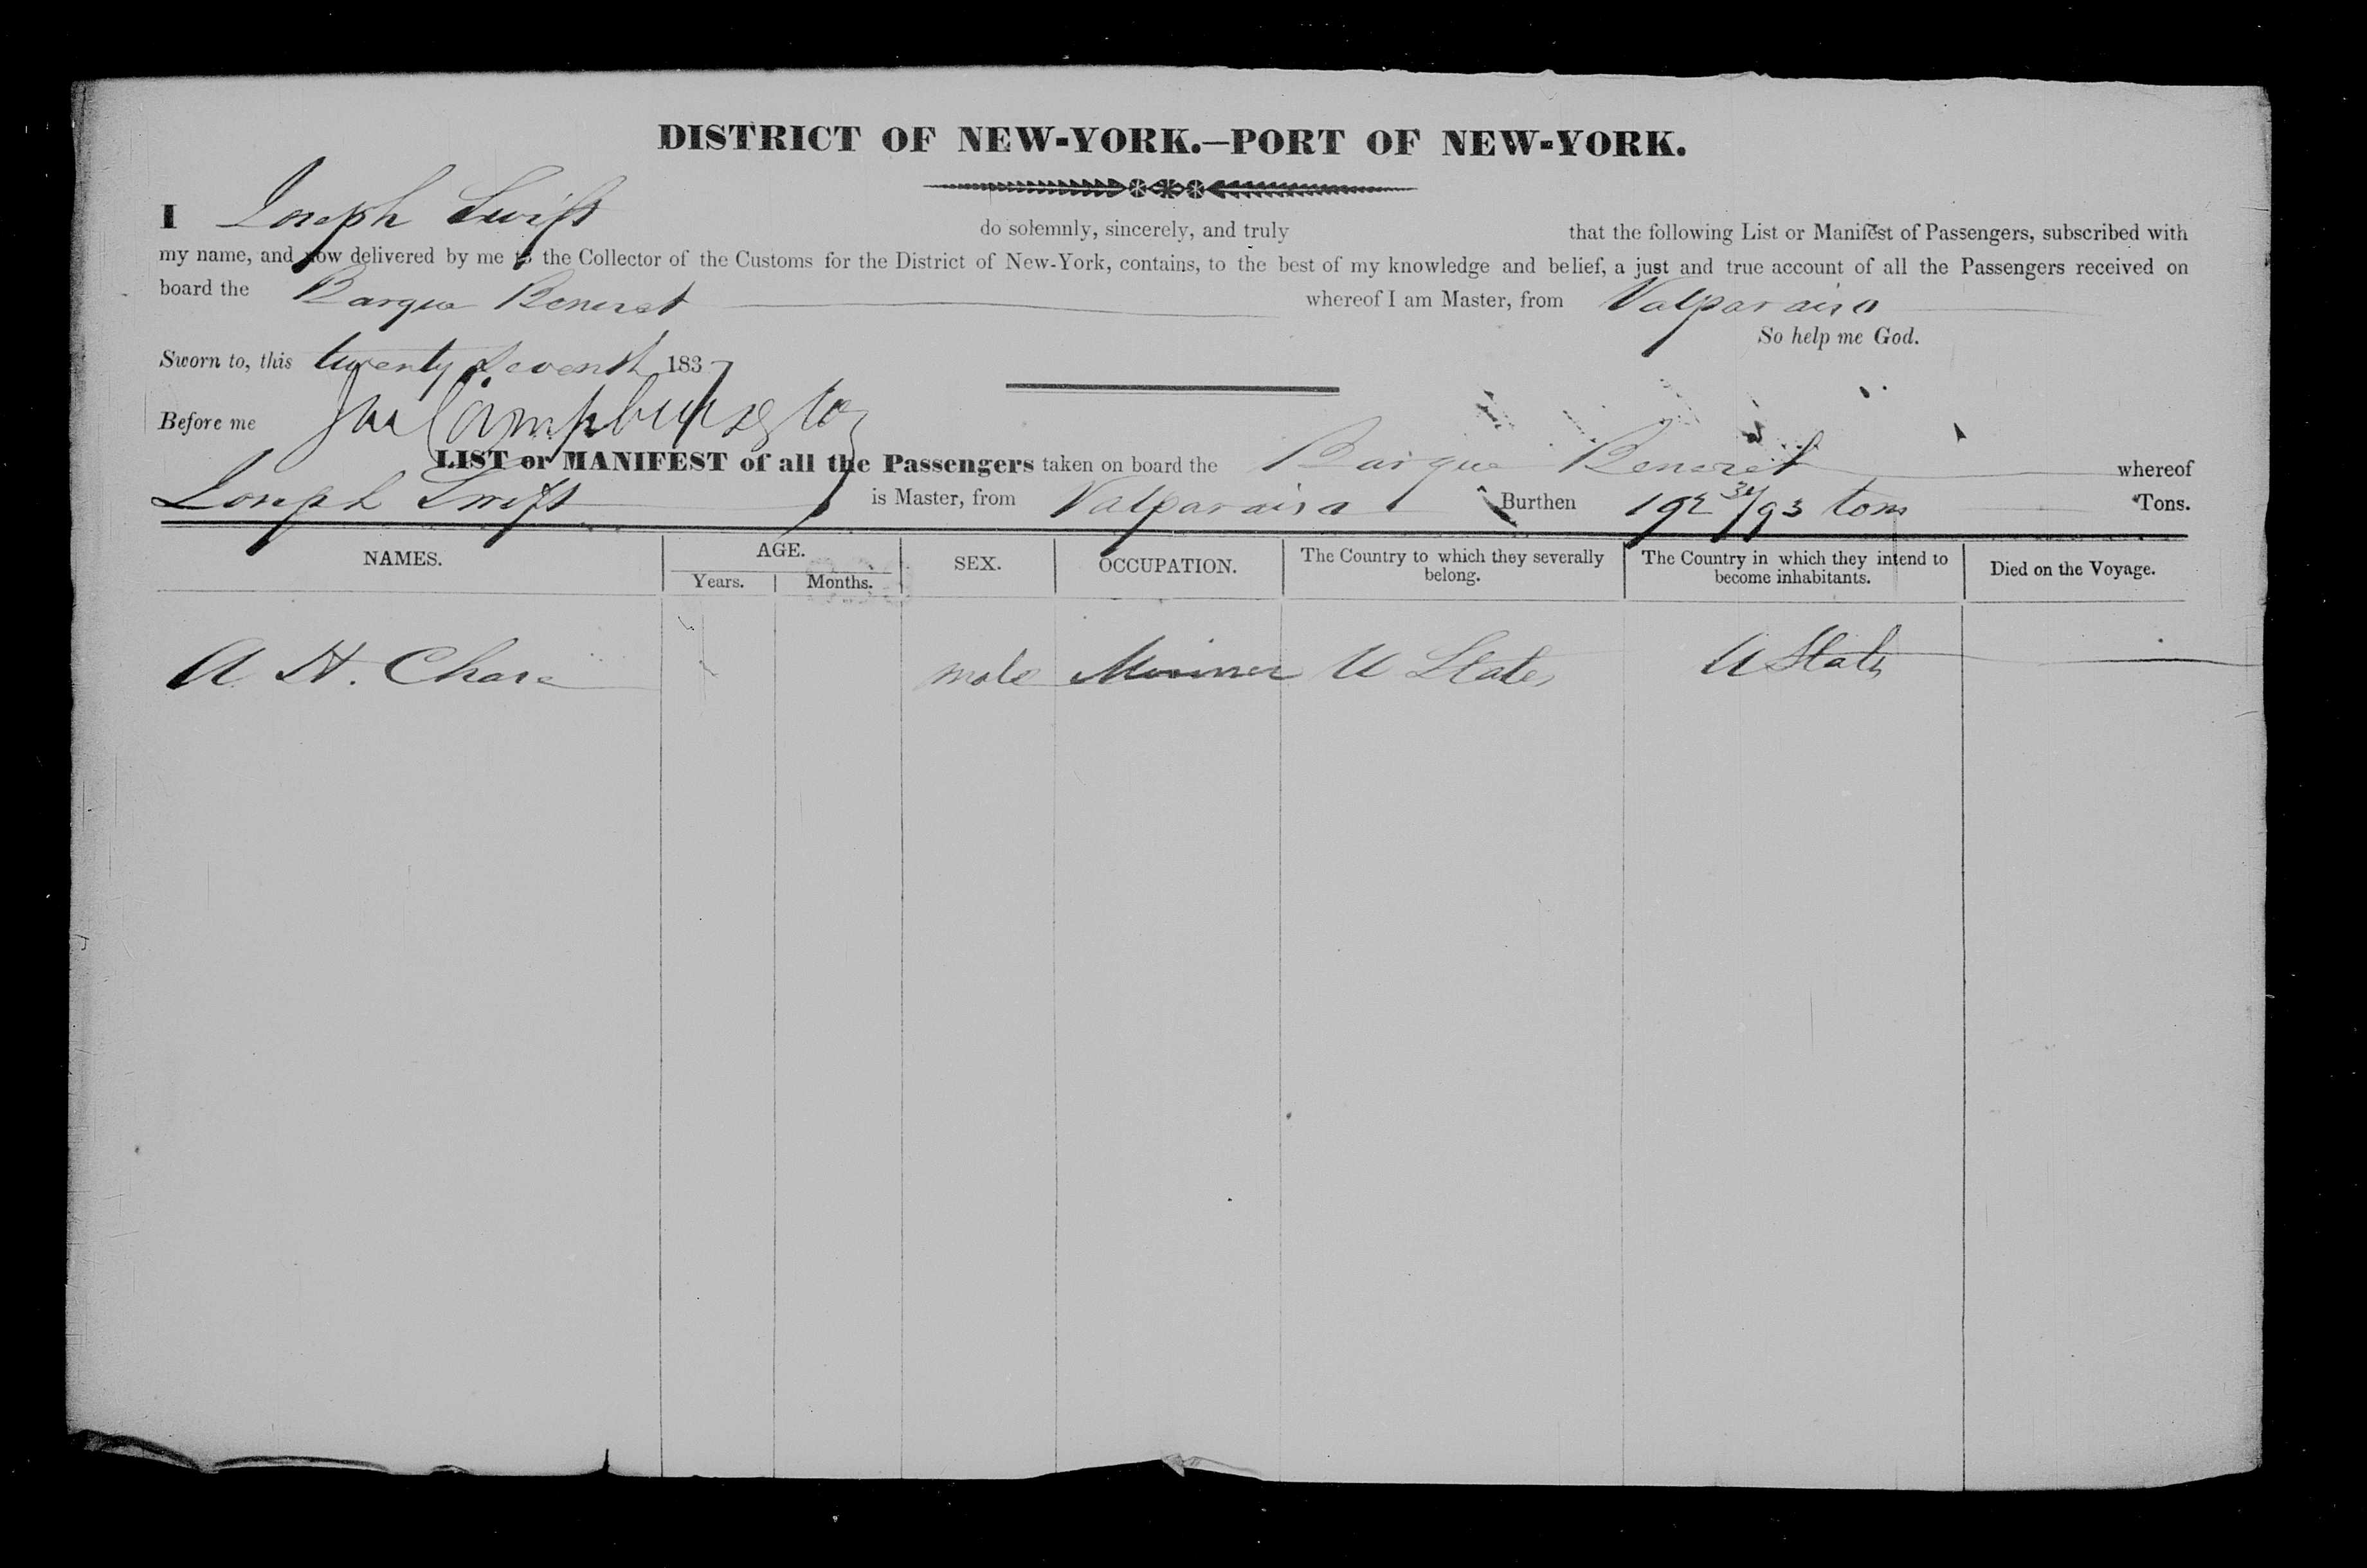 DISTRICT OF NEW-YORK.—PORT OF NEW-YORK.
I Joseph Swift do solemnly, sincerely, and truly that the following List or Manifest of Passengers, subscribed with
my name, and now delivered by me to the Collector of the Customs for the District of New-York, contains, to the best of my knowledge and belief, a just and true account of all the Passengers received on
board the Barque whereof I am Master, from Valparaiso
So help me God.
Sworn to, this twenty Seventh 1837
Before me
LIST or MANIFEST of all the Passengers taken on board the Barque whereof
Joseph Swift is Master, from Valparaiso Burthen tons Tons.
NAMES. AGE. SEX. OCCUPATION. The Country to which they severally belong. The Country in which they intend to become inhabitants. Died on the Voyage.
Years. Months.
A. H. Chase male Mariner U States U States